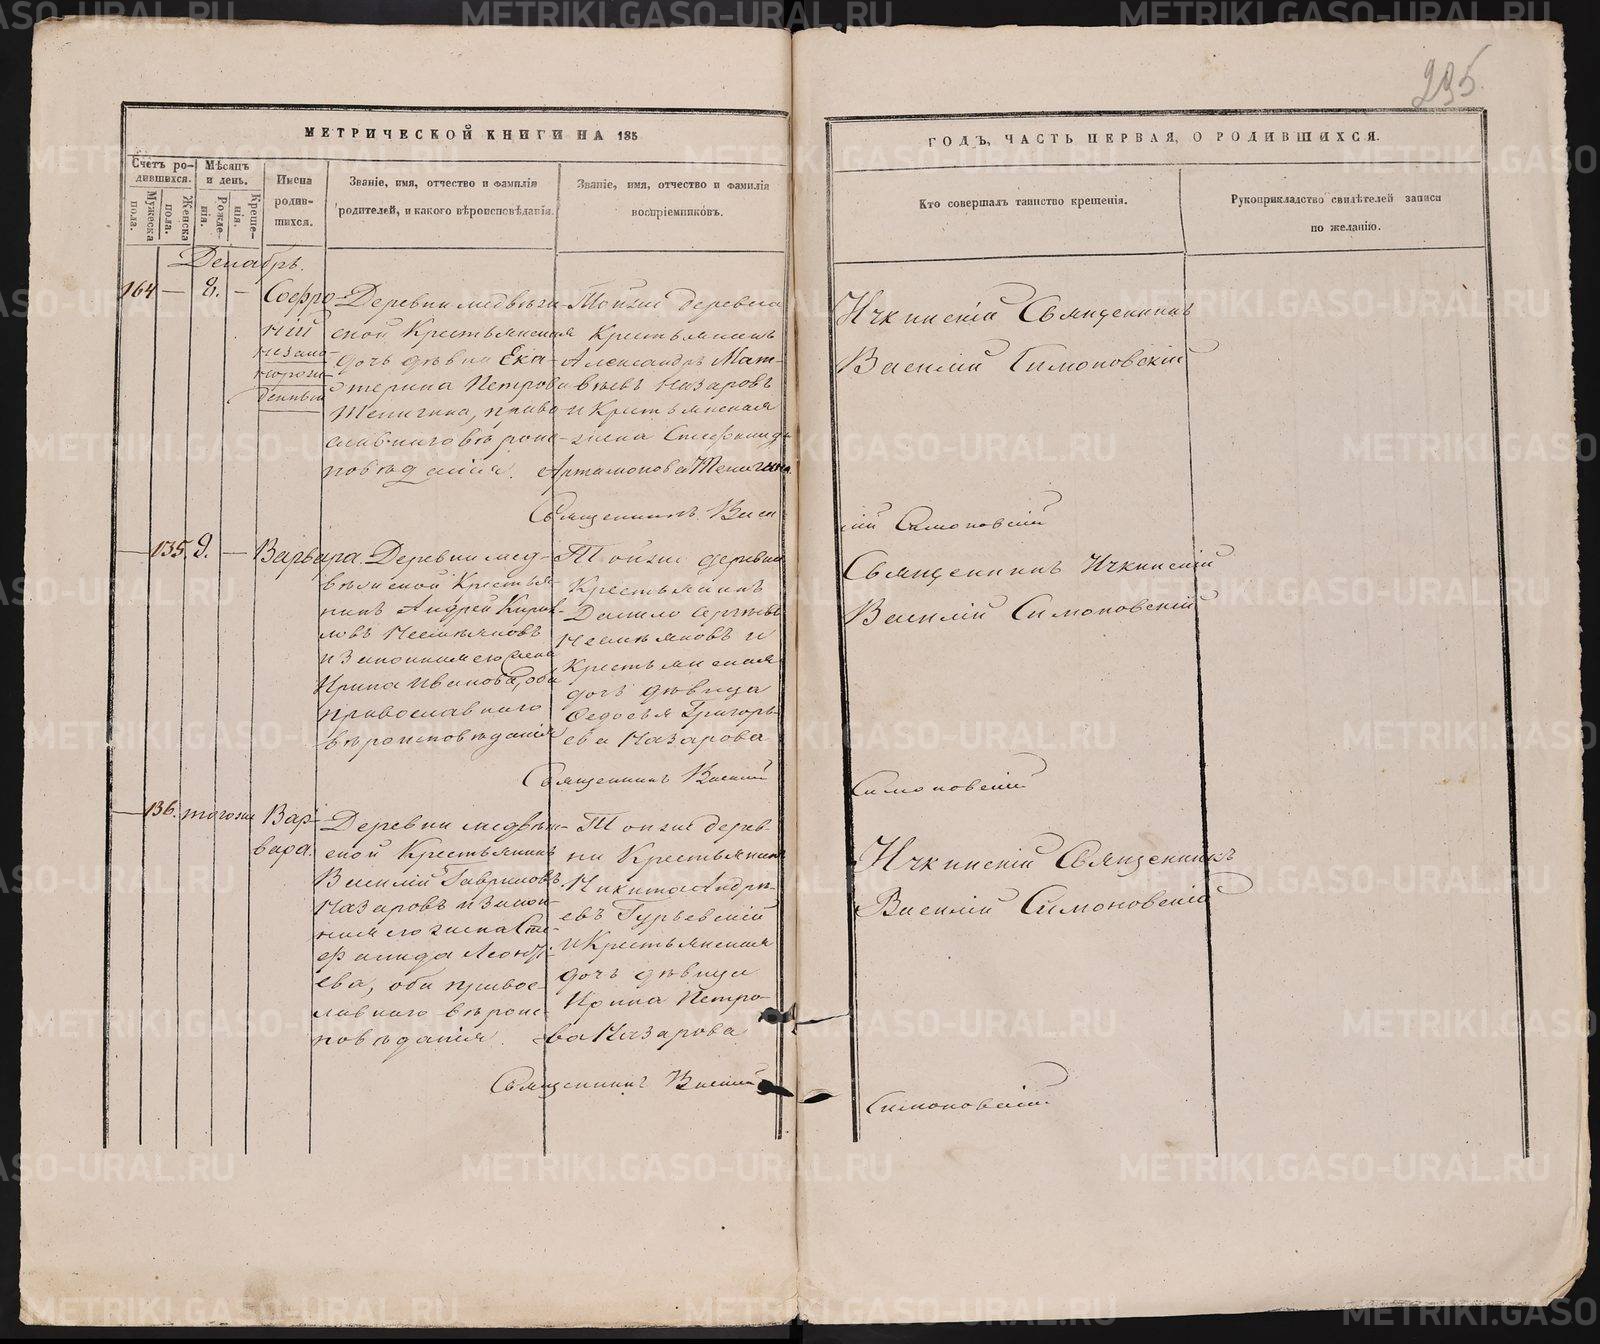 235
МЕТРИЧЕСКОЙ КНИГИ НА 185
ГОДЪ, ЧАСТЬ ПЕРВАЯ, О РОДИВШИХСЯ.
Счетъ ро-
дившихся.
Мужеска
пола.
Женска
пола.
Мѣсяцъ
и день.
Рожде-
нія.
Креще-
нія.
Имена
родив-
шихся.
Званіе, имя, отчество и фамилія
родителей, и какого вѣроисповѣданія.
Званіе, имя, отчество и фамилія
воспріемниковъ.
Кто совершалъ таинство крещенія.
Рукоприкладство свидѣтелей записи
по желанію.
Декабрь.
164 — 8. —
Софро-
ній
незако-
норож-
денный
Деревни Медвѣжь-
ской Крестьянская
дочь дѣвка Ека-
терина Петрова
православ-
наго вѣроис-
повѣданія.
Тойже деревни
Крестьянинъ
Александръ Мат-
вѣевъ Назаровъ
и Крестьянская
жена
Артамонова
Ичкинскій Священникъ
Василій Симоновскій
Священникъ Васи-
лій Симоновскій
— 135. 9. —
Варвара.
Деревни Мед-
Крестья-
нинъ Андрей Кирил-
ловъ
и законная его жена
Ирина Иванова, оба
православнаго
вѣроисповѣданія
Тойже деревни
Крестьянинъ
Данило
и
Крестьянская
дочь дѣвица
Федосья Григорь-
ева Назарова
Священникъ Ичкинскій
Василій Симоновскій
Священникъ Василій
Симоновскій
— 136. тогоже
Вар-
вара.
Деревни
ской Крестьянинъ
Василій Гавриловъ
Назаровъ и закон-
ная его жена Сте-
фанида Леонть-
ева, оба правос-
лавнаго вѣроис-
повѣданія.
Тойже дерев-
ни Крестьянинъ
Никита Андре-
евъ Гурьевскій
и Крестьянская
дочь дѣвица
Ирина Петро-
ва Назарова
Ичкинскій Священникъ
Василій Симоновскій
Священникъ Василій
Симоновскій
METRIKI.GASO-URAL.RU